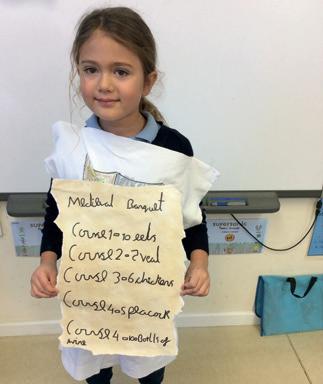 Medieval Banquet
Course 1=10 eels
Course 2=2 veal
Course 3=6 chickens
Course 4=5 peacock
Course 4=100 Bottles of
wine
supersonic